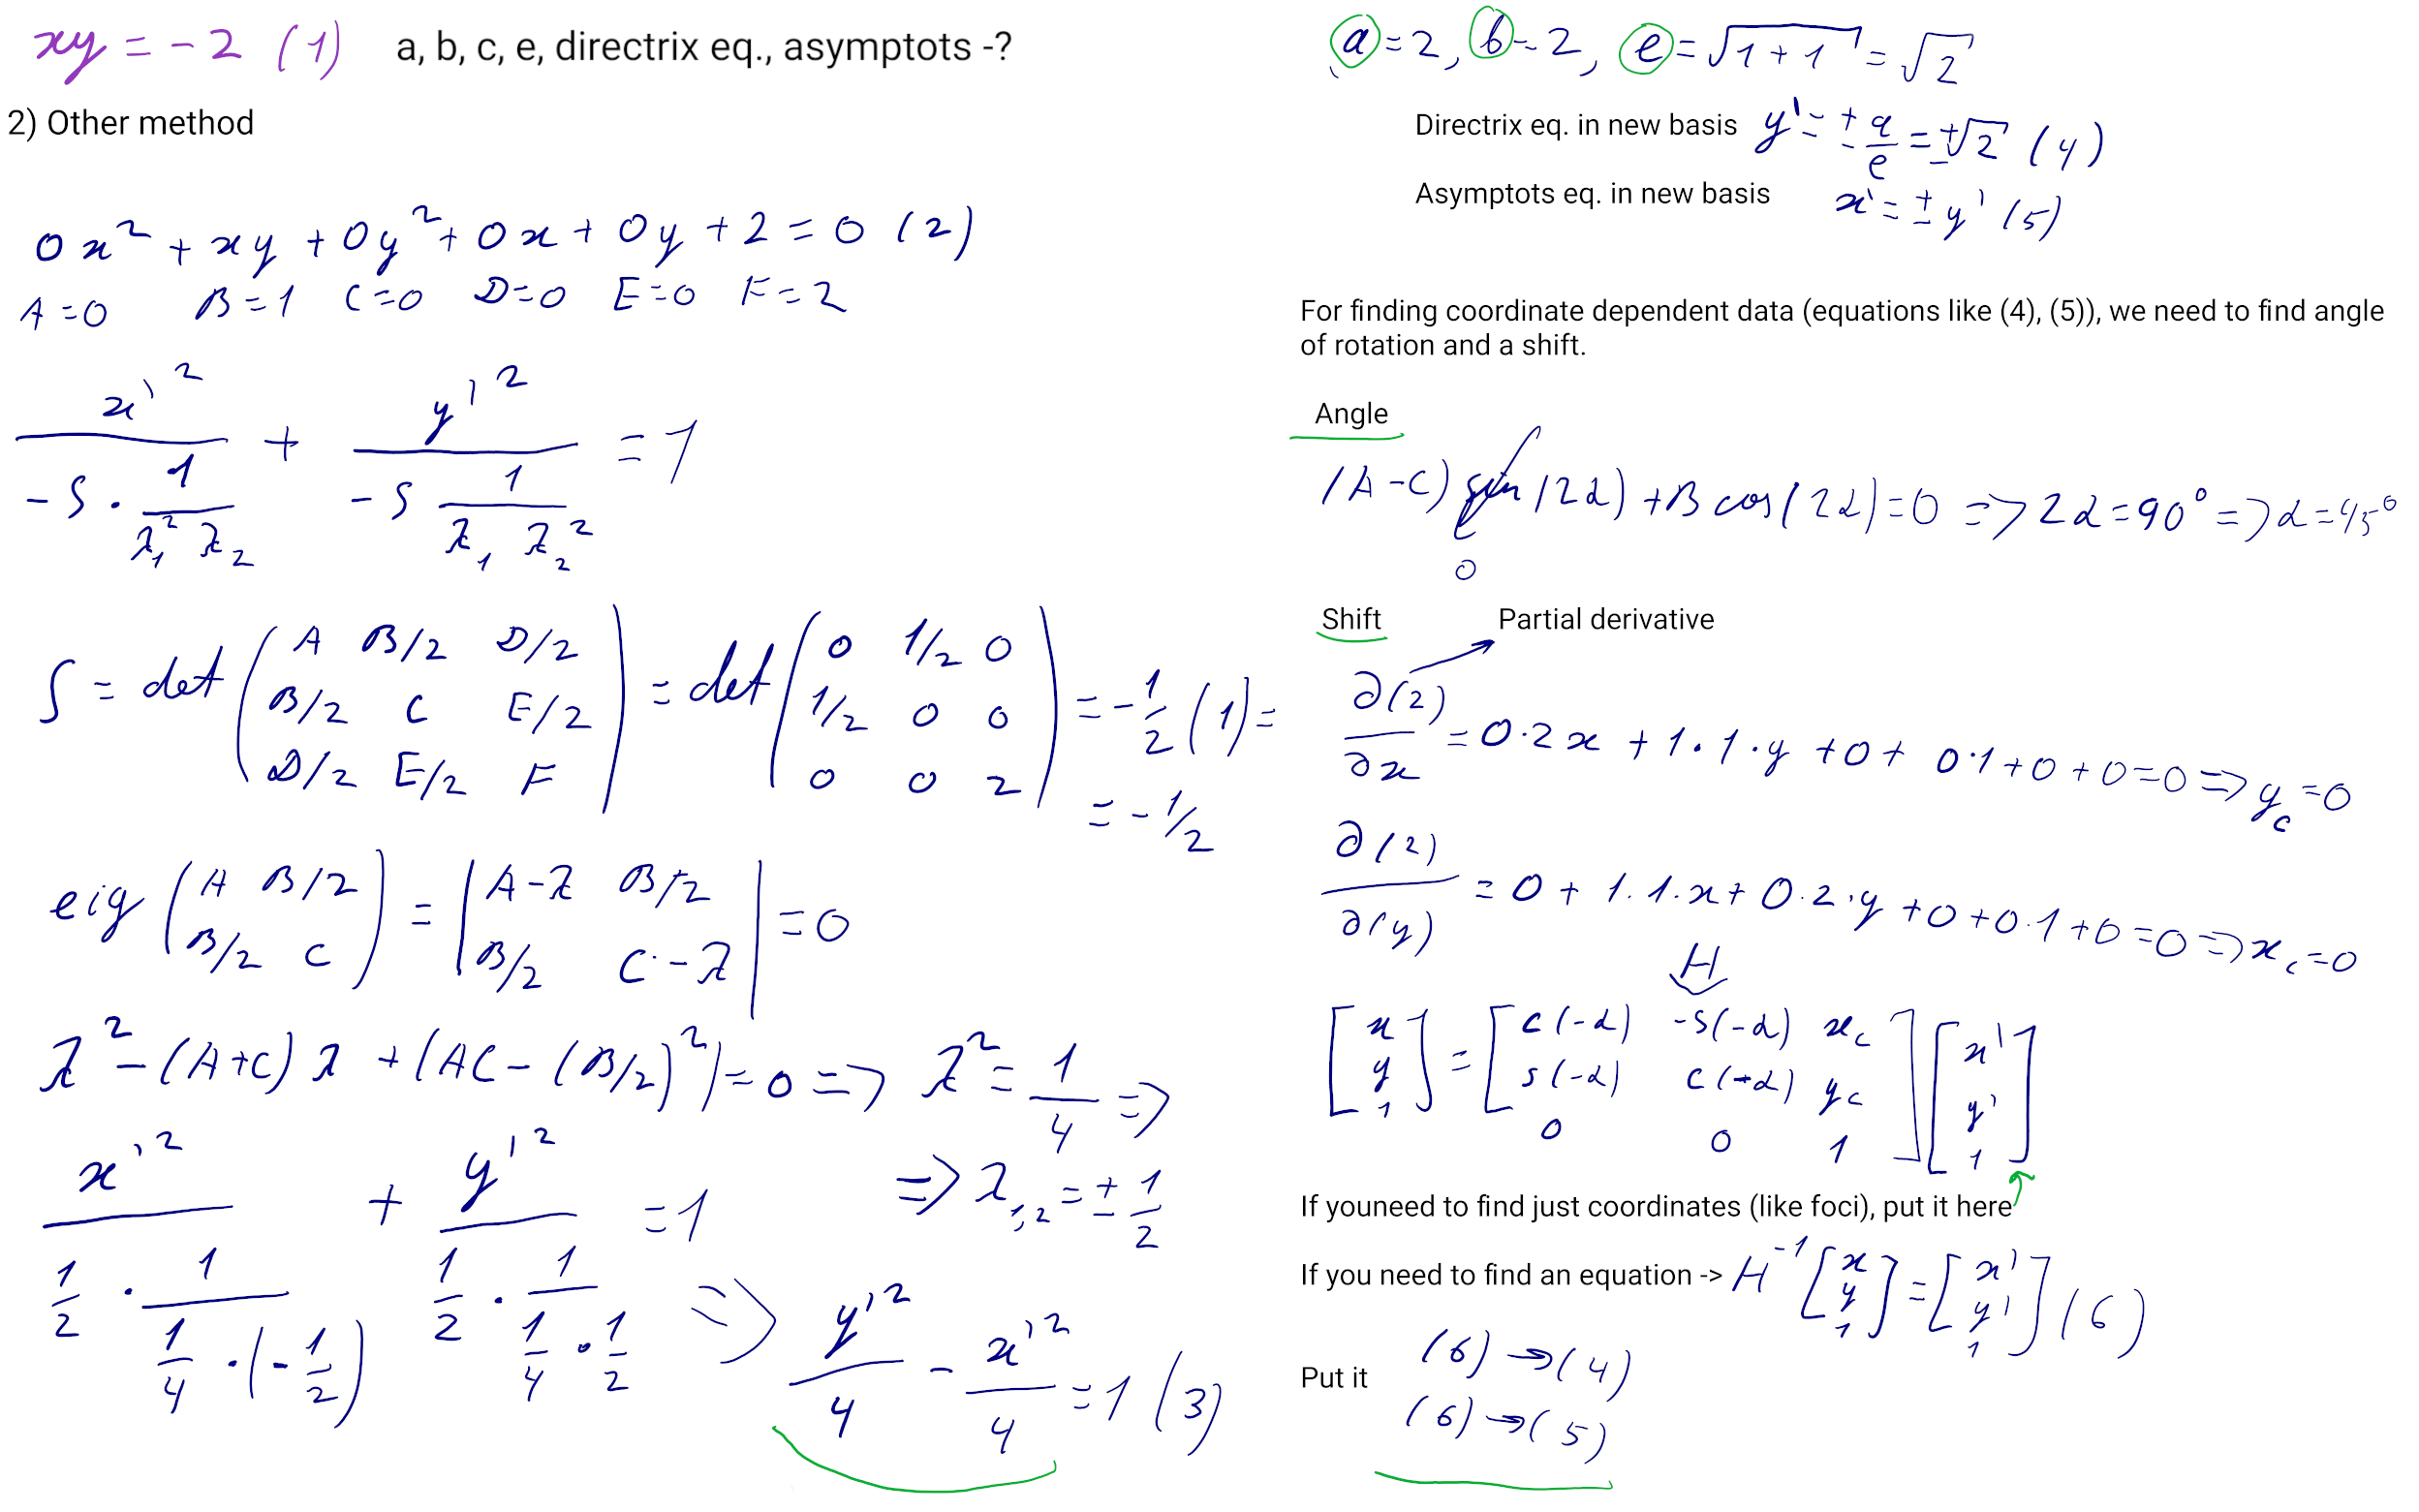 xy = -2 (1) a, b, c, e, directrix eq., asymptots -?
2) Other method
0x² + xy + 0y² + 0x + 0y + 2 = 0 (2)
A=0 B=1 C=0 D=0 E=0 F=2
x'²/(-S · 1/(λ₁² λ₂)) + y'²/(-S 1/(λ₁ λ₂²)) = 1
S = det(A B/2 D/2; B/2 C E/2; D/2 E/2 F) = det(0 1/2 0; 1/2 0 0; 0 0 2) = -1/2 (1) =
= -1/2
eig(A B/2; B/2 C) = |A-λ B/2; B/2 C-λ| = 0
λ² - (A+C)λ + (AC - (B/2)²) = 0 => λ² = 1/4 =>
=> λ₁,₂ = ± 1/2
x'²/(1/2 · 1/(1/4 · (-1/2))) + y'²/(1/2 · 1/(1/4 · 1/2)) = 1 => y'²/4 - x'²/4 = 1 (3)
a = 2, b = 2, e = √(1+1) = √2
Directrix eq. in new basis y' = ± a/e = ±√2 (4)
Asymptots eq. in new basis x' = ± y' (5)
For finding coordinate dependent data (equations like (4), (5)), we need to find angle
of rotation and a shift.
Angle
(A-C) sin(2α) + B cos(2α) = 0 => 2α = 90° => α = 45°
0
Shift Partial derivative
∂(2)/∂x = 0·2x + 1·1·y + 0 + 0·1 + 0 + 0 = 0 => y_c = 0
∂(2)/∂(y) = 0 + 1·1·x + 0·2·y + 0 + 0·1 + 0 = 0 => x_c = 0
H
[x; y; 1] = [c(-α) -s(-α) x_c; s(-α) c(-α) y_c; 0 0 1] [x'; y'; 1]
If youneed to find just coordinates (like foci), put it here
If you need to find an equation -> H⁻¹ [x; y; 1] = [x'; y'; 1] (6)
Put it (6) → (4)
(6) → (5)